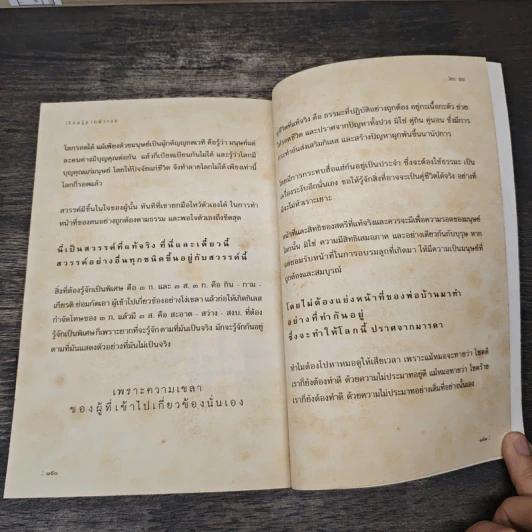 โลกรอดได้ แม้เพียงด้วยมนุษย์เป็นผู้กตัญญูกตเวที คือรู้ว่า มนุษย์แต่
ละคนต่างมีบุญคุณต่อกัน แล้วก็เบียดเบียนกันไม่ได้ และรู้ว่าโลกมี
บุญคุณแก่มนุษย์ โดยให้ปัจจัยแก่ชีวิต จึงทำลายโลกไม่ได้ เพียงเท่านี้
โลกก็รอดแล้ว
สวรรค์มีขึ้นในใจของผู้นั้น ทันทีที่เขายกมือไหว้ตัวเองได้ ในการทำ
หน้าที่ของตนอย่างถูกต้องตามธรรม และพอใจตัวเองถึงขีดสุด
นี่เป็นสวรรค์ที่แท้จริง ที่นี่และเดี๋ยวนี้
สวรรค์อย่างอื่นทุกชนิดขึ้นอยู่กับสวรรค์นี้
สิ่งที่ต้องรู้จักเป็นพิเศษ คือ ๓ ก. และ ๓ ส. ๓ ก. คือ กิน - กาม -
เกียรติ ย่อมกัดเอา ผู้เข้าไปเกี่ยวข้องอย่างโง่เขลา แล้วก่อให้เกิดกิเลส
กำจัดโทษของ ๓ ก. แล้วมี ๓ ส. คือ สะอาด - สว่าง - สงบ. ที่ต้อง
รู้จักเป็นพิเศษก็เพราะยากที่จะรู้จัก ตามที่มันเป็นจริง มักจะรู้จักกันอยู่
ตามที่มันแสดงตัวอย่างที่มันไม่เป็นจริง
เพราะความเขลา
ของผู้ที่เข้าไปเกี่ยวข้องนั่นเอง
คู่ชีวิตที่แท้จริง คือ ธรรมะที่ปฏิบัติอย่างถูกต้อง อยู่กะเนื้อกะตัว ช่วย
ให้รอดชีวิต และปราศจากปัญหาทั้งปวง มิใช่ คู่กิน คู่นอน ซึ่งมีการ
กระทำอันส่งเสริมกิเลส และสร้างปัญหาผูกพันขึ้นนานัปการ
โดยมีการกระทบสื่อแก่กันอยู่เป็นประจำ ซึ่งจะต้องใช้ธรรมะ เป็น
เครื่องระงับอีกนั่นเอง ขอให้รู้จักสิ่งที่อาจจะเป็นคู่ชีวิตได้จริง อย่างที่
จะไม่หัวเราะเยาะ
หน้าที่และสิทธิของสตรีที่แท้จริงและควรจะมีเพื่อความรอดของมนุษย์
โลกนั้น มิใช่ ความมีสิทธิเสมอภาค และอย่างเดียวกันกับบุรุษ หาก
แต่ยอมรับหน้าที่ในการอบรมลูกที่เกิดมา ให้มีความเป็นมนุษย์ที่
ถูกต้องและสมบูรณ์
โดยไม่ต้องแย่งหน้าที่ของพ่อบ้านมาทำ
อย่างที่ทำกันอยู่
ซึ่งจะทำให้โลกนี้ ปราศจากมารดา
ทำไมต้องไปหาหมอดูให้เสียเวลา เพราะแม้หมอจะทายว่า โชคดี
เราก็ยังต้องทำดี ด้วยความไม่ประมาทอยู่ดี แม้หมอจะทายว่า โชคร้าย
เราก็ยังต้องทำดี ด้วยความไม่ประมาทอย่างเต็มที่อย่างนั่นเอง